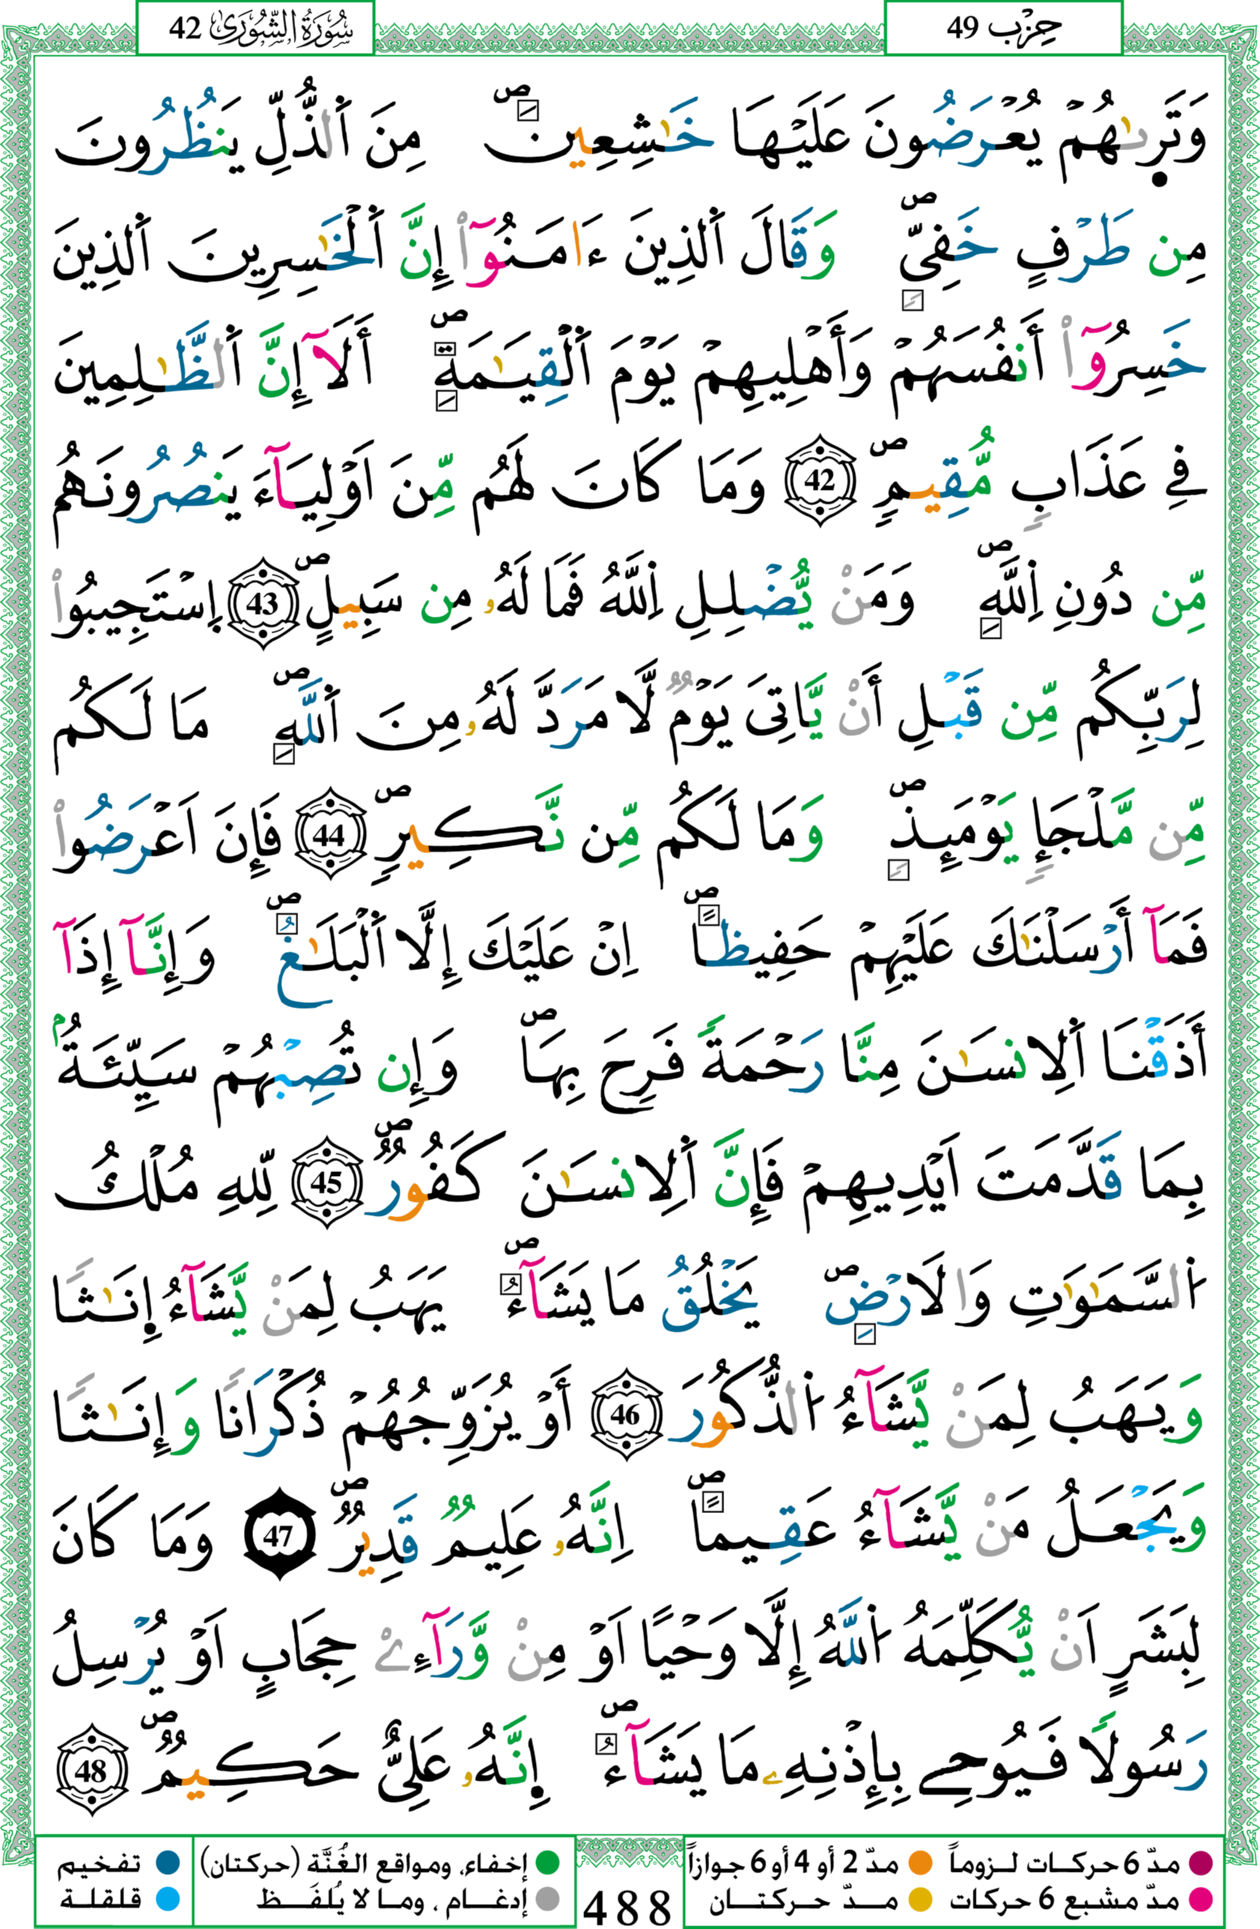 حِزْب 49
سُورَةُ الشُّورَىٰ 42
وَتَرٜىٰهُمْ يُعْرَضُونَ عَلَيْهَا خَٰشِعِينَ ۖ مِنَ اَ۬لذُّلِّ يَنظُرُونَ
مِن طَرْفٍ خَفِيّٖۖ وَقَالَ اَ۬لذِينَ ءَامَنُوٓاْ إِنَّ اَ۬لْخَٰسِرِينَ اَ۬لذِينَ
خَسِرُوٓاْ أَنفُسَهُمْ وَأَهْلِيهِمْ يَوْمَ اَ۬لْقِيَٰمَةِۖ أَلَآ إِنَّ اَ۬لظَّٰلِمِينَ
فِے عَذَابٖ مُّقِيمٖۖ 42 وَمَا كَانَ لَهُم مِّنَ اَوْلِيَآءَ يَنصُرُونَهُم
مِّن دُونِ اِ۬للَّهِۖ وَمَنْ يُّضْلِلِ اِ۬للَّهُ فَمَا لَهُۥ مِن سَبِيلٍۖ 43 اِ۪سْتَجِيبُواْ
لِرَبِّكُم مِّن قَبْلِ أَنْ يَّاتِيَ يَوْمٞ لَّا مَرَدَّ لَهُۥ مِنَ اَ۬للَّهِۖ مَا لَكُم
مِّن مَّلْجَإٖ يَوْمَئِذٖۖ وَمَا لَكُم مِّن نَّكِيرٖۖ 44 فَإِنَ اَعْرَضُواْ
فَمَآ أَرْسَلْنَٰكَ عَلَيْهِمْ حَفِيظاًۖ اِنْ عَلَيْكَ إِلَّا اَ۬لْبَلَٰغُۖ وَإِنَّآ إِذَآ
أَذَقْنَا اَ۬لِانسَٰنَ مِنَّا رَحْمَةٗ فَرِحَ بِهَاۖ وَإِن تُصِبْهُمْ سَيِّئَةُۢ
بِمَا قَدَّمَتَ اَيْدِيهِمْ فَإِنَّ اَ۬لِانسَٰنَ كَفُورٞۖ 45 لِّلهِ مُلْكُ
اُ۬لسَّمَٰوَٰتِ وَالَارْضِۖ يَخْلُقُ مَا يَشَآءُۖ يَهَبُ لِمَنْ يَّشَآءُ إِنَٰثاٗ
وَيَهَبُ لِمَنْ يَّشَآءُ اُ۬لذُّكُورَ 46 أَوْ يُزَوِّجُهُمْ ذُكْرَاناٗ وَإِنَٰثاٗ
وَيَجْعَلُ مَنْ يَّشَآءُ عَقِيماًۖ اِنَّهُۥ عَلِيمٞ قَدِيرٞۖ 47 وَمَا كَانَ
لِبَشَرٍ اَنْ يُّكَلِّمَهُ اُ۬للَّهُ إِلَّا وَحْياً اَوْ مِنْ وَّرَآءِےْ حِجَابٍ اَوْ يُرْسِلُ
رَسُولاٗ فَيُوحِے بِإِذْنِهِۦ مَا يَشَآءُۖ إِنَّهُۥ عَلِيٌّ حَكِيمٞۖ 48
مدّ 6 حركات لـزوماً
مدّ 2 أو 4 أو 6 جوازاً
مدّ مشبع 6 حركات
مــدّ حركتــان
488
إخفاء، ومواقع الغُنَّة (حركتان)
إدغـام ، ومـا لا يُلفَـظ
تفخيم
قلقلة